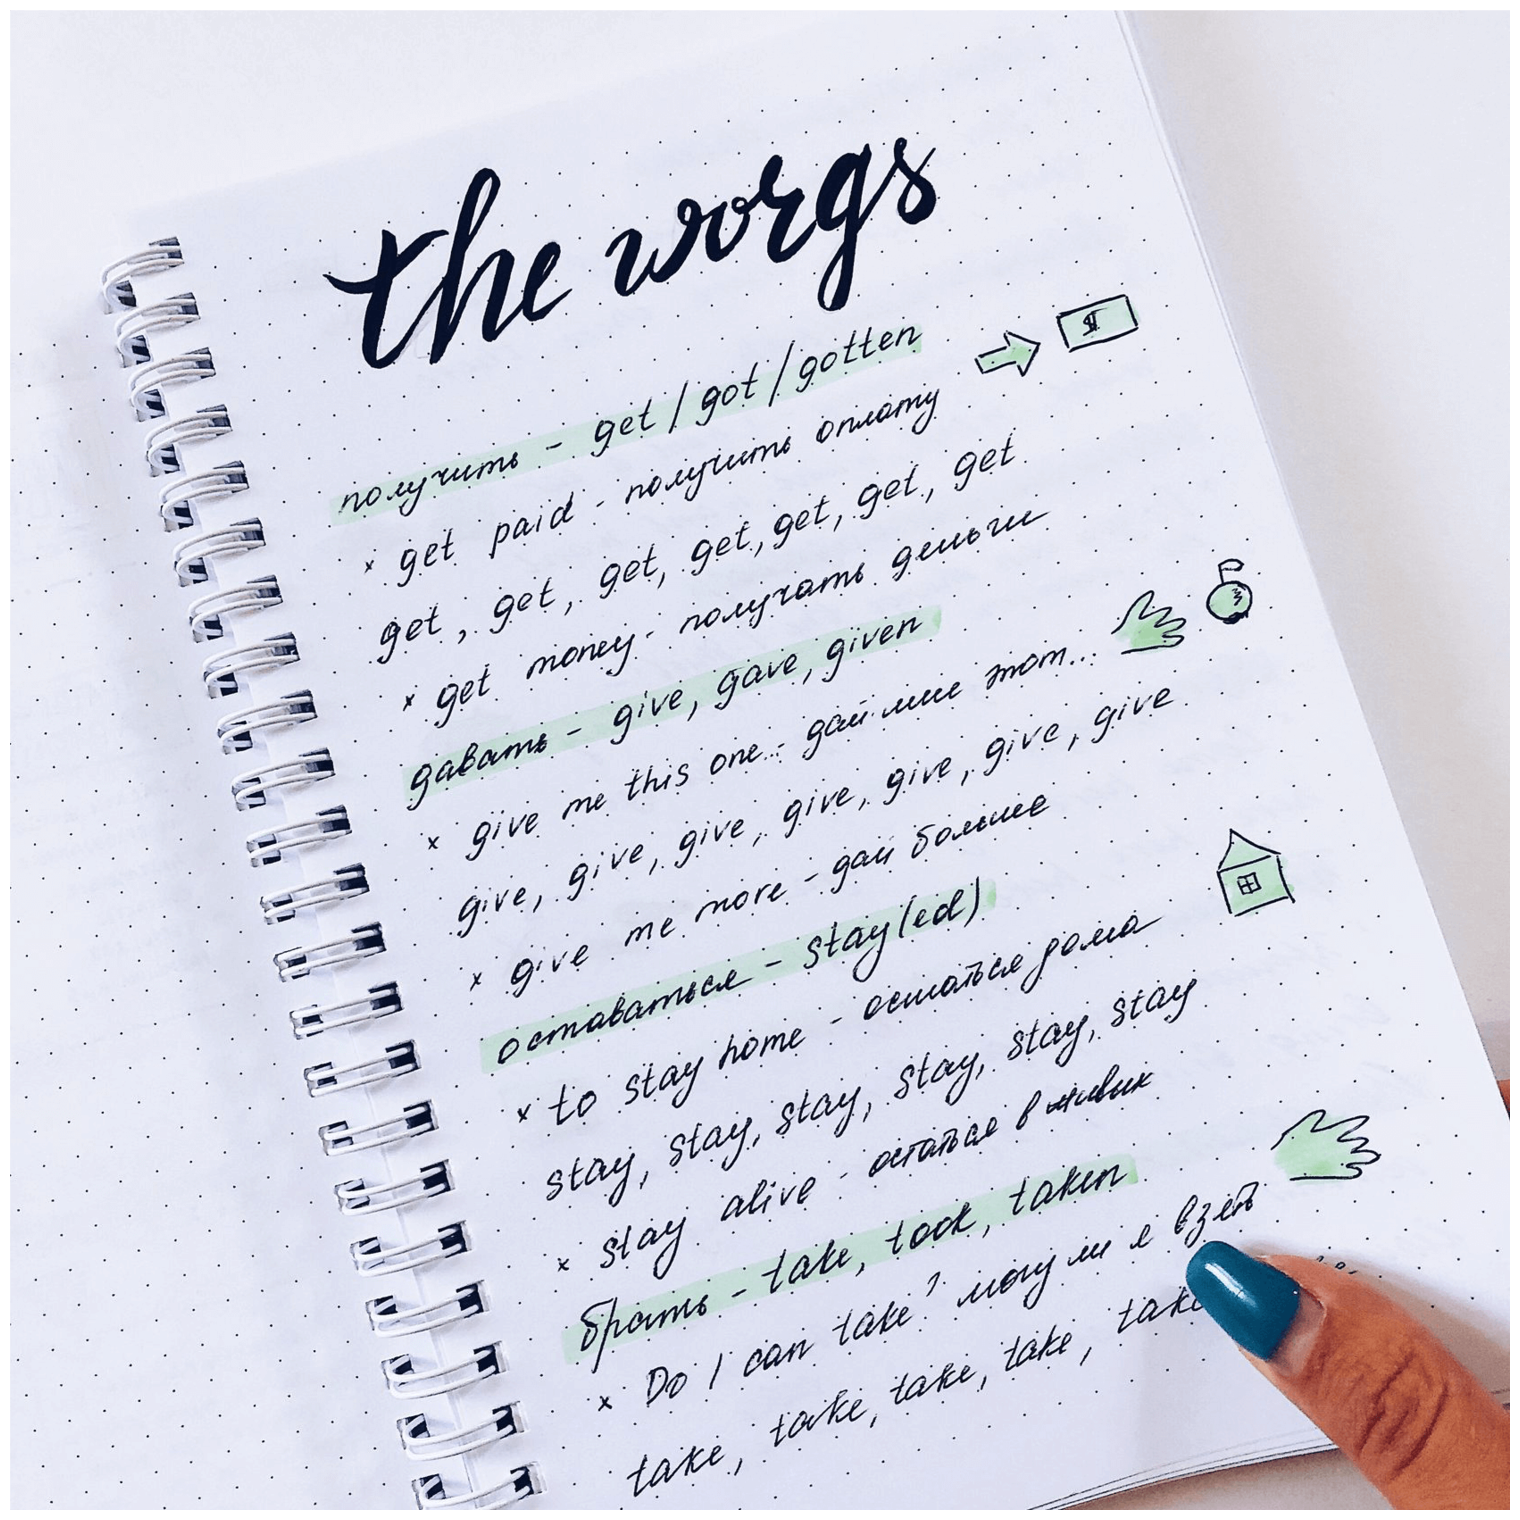 the worgs
получить - get / got / gotten
× get paid - получить оплату
get, get, get, get, get, get, get
× get money - получать деньги
давать - give, gave, given
× give me this one... - дай мне этот...
give, give, give, give, give, give, give
× give me more - дай больше
оставаться - stay(ed)
× to stay home - остаться дома
stay, stay, stay, stay, stay, stay
× stay alive - остаться в живых
брать - take, took, taken
× Do I can take? могу ли я взять
take, take, take, take, take